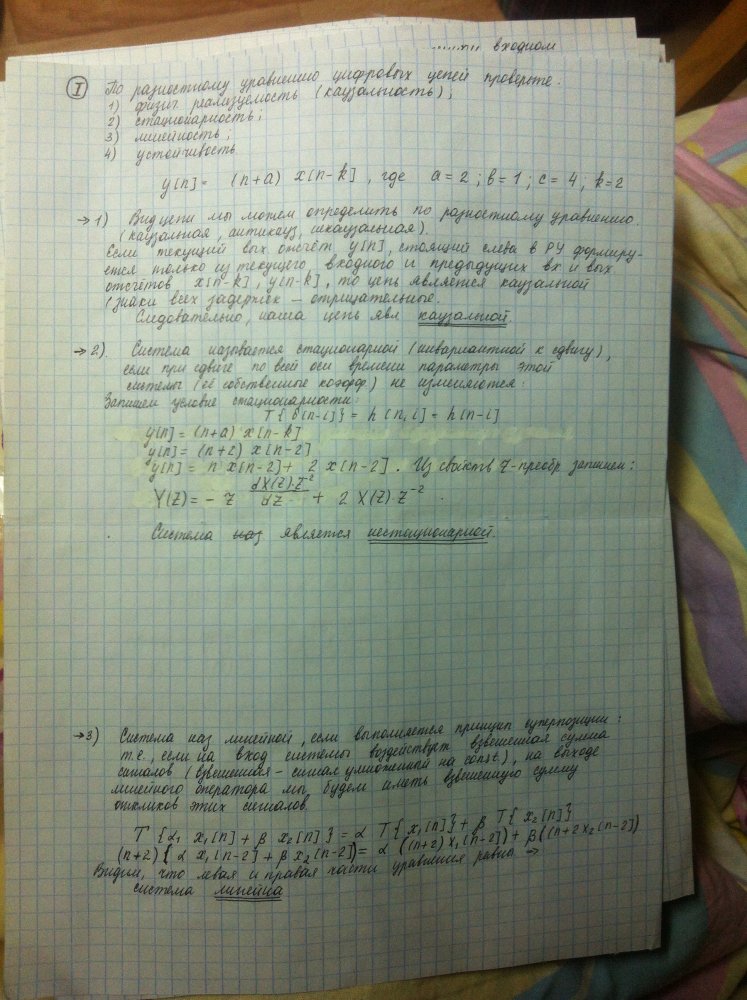 входном
I По разностному уравнению цифровых цепей проверьте.
1) физич реализуемость (каузальность);
2) стационарность;
3) линейность;
4) устойчивость
y[n] = (n+a) x[n-k], где a=2; b=1; c=4; k=2
→ 1) Вид цепи мы можем определить по разностному уравнению
(каузальная, антикауз, некаузальная).
Если текущий вых отсчёт y[n], стоящий слева в РУ формиру-
ется только из текущего входного и предыдущих вх и вых
отсчётов x[n-k], y[n-k], то цепь является каузальной
(знаки всех задержек – отрицательные.
Следовательно, наша цепь явл каузальной.
→ 2) Система называется стационарной (инвариантной к сдвигу),
если при сдвиге по всей оси времени параметры этой
системы (её собственные коэфф) не изменяются:
Запишем условие стационарности:
T{δ[n-i]} = h[n,i] = h[n-i]
y[n] = (n+a) x[n-k]
y[n] = (n+2) x[n-2]
y[n] = n x[n-2] + 2 x[n-2]. Из свойств Z-преобр запишем:
Y(Z) = - Z dX(Z)·Z⁻²/dZ + 2 X(Z)·Z⁻².
Система наз является нестационарной.
→ 3) Система наз линейной, если выполняется принцип суперпозиции:
т.е., если на вход системы воздействует взвешенная сумма
сигналов (взвешенная – сигнал умноженный на const), на выходе
линейного оператора мы будем иметь взвешенную сумму
откликов этих сигналов.
T{α₁ x₁[n] + β x₂[n]} = α T{x₁[n]} + β T{x₂[n]}
(n+2){α x₁[n-2] + β x₂[n-2]) = α((n+2) x₁[n-2]) + β((n+2 x₂[n-2])
Видим, что левая и правая части уравнения равны ⇒
система линейна